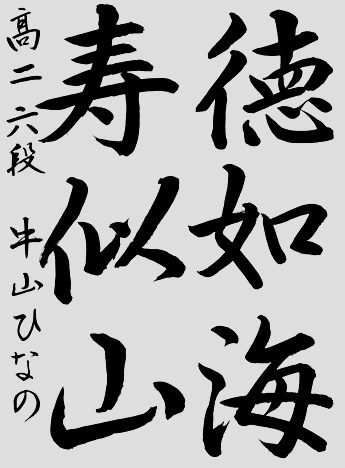 徳如海
寿似山
高二 六段 牛山ひなの